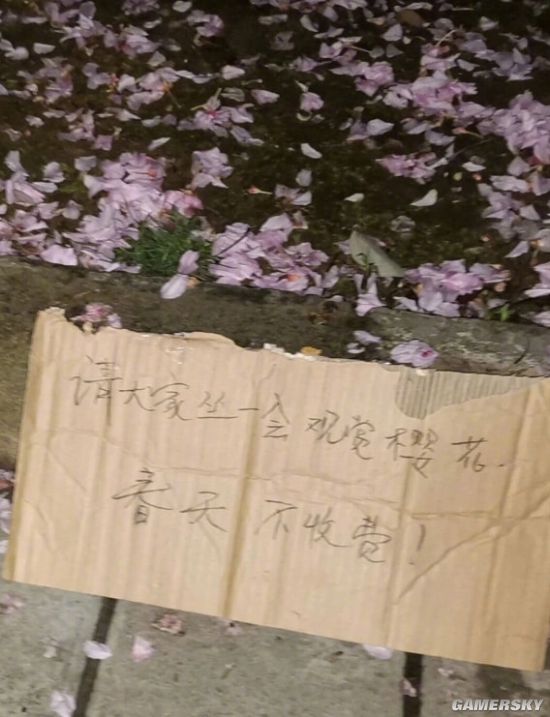 请大家坐一会观赏樱花.
春天不收费!
GAMERSKY